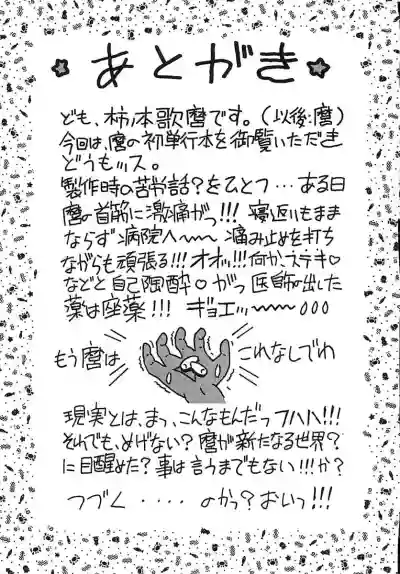 ☆ あとがき ☆
ども、柿ノ本歌麿です。(以後:麿)
今回は、麿の初単行本を御覧いただき
どうもッス。
製作時の苦労話?をひとつ…ある日
麿の首筋に激痛がっ!!! 寝返いもまま
ならず病院へ〜〜 痛み止めを打ち
ながらも頑張る!!!オオッ!!!何かステキ♡
などと自己陶酔♡がっ医師が出した
薬は座薬!!! ギョエッ〜〜〜ooo
もう麿は これなしでわ
現実とは、まっ、こんなもんだっフハハ!!!
それでも、めげない?麿が新たなる世界?
に目醒めた?事は言うまでもない!!!か?
つづく・・・・のかっ?おいっ!!!